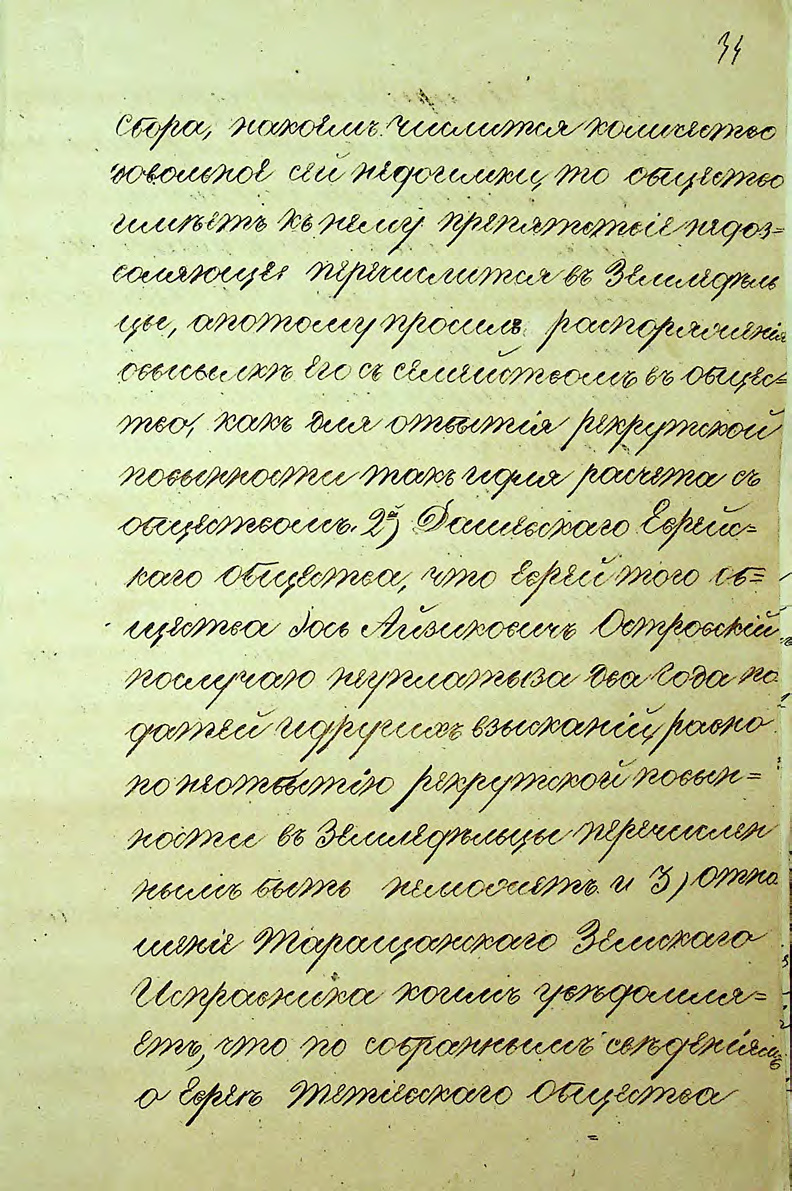 34
сбора, накоемъ числится количество
довольное сей недоимки, то общество
имѣетъ къ нему препятствіе недоз=
воляющее перечислится въ Земледѣль
цы, апотому просилъ распоряженія
овысылкѣ его съ семействомъ въ общес=
тво, какъ для отбытія рекрутской
повинности такъ идля расчета съ
обществомъ. 2й) Дашевскаго Еврейс=
каго общества, что еврей того об=
щества Іось Айзиковичъ Островскій
послучаю неуплаты за два года по
датей идругихъ взысканій, равно
по неотбытію рекрутской повин=
ности въ Земледѣльцы перечислен
нымъ быть неможетъ и 3) отно
шеніе Таращанскаго Земскаго
Исправника коимъ увѣдомля=
етъ, что по собраннымъ свѣденіямъ
о евреѣ Тетіевскаго общества